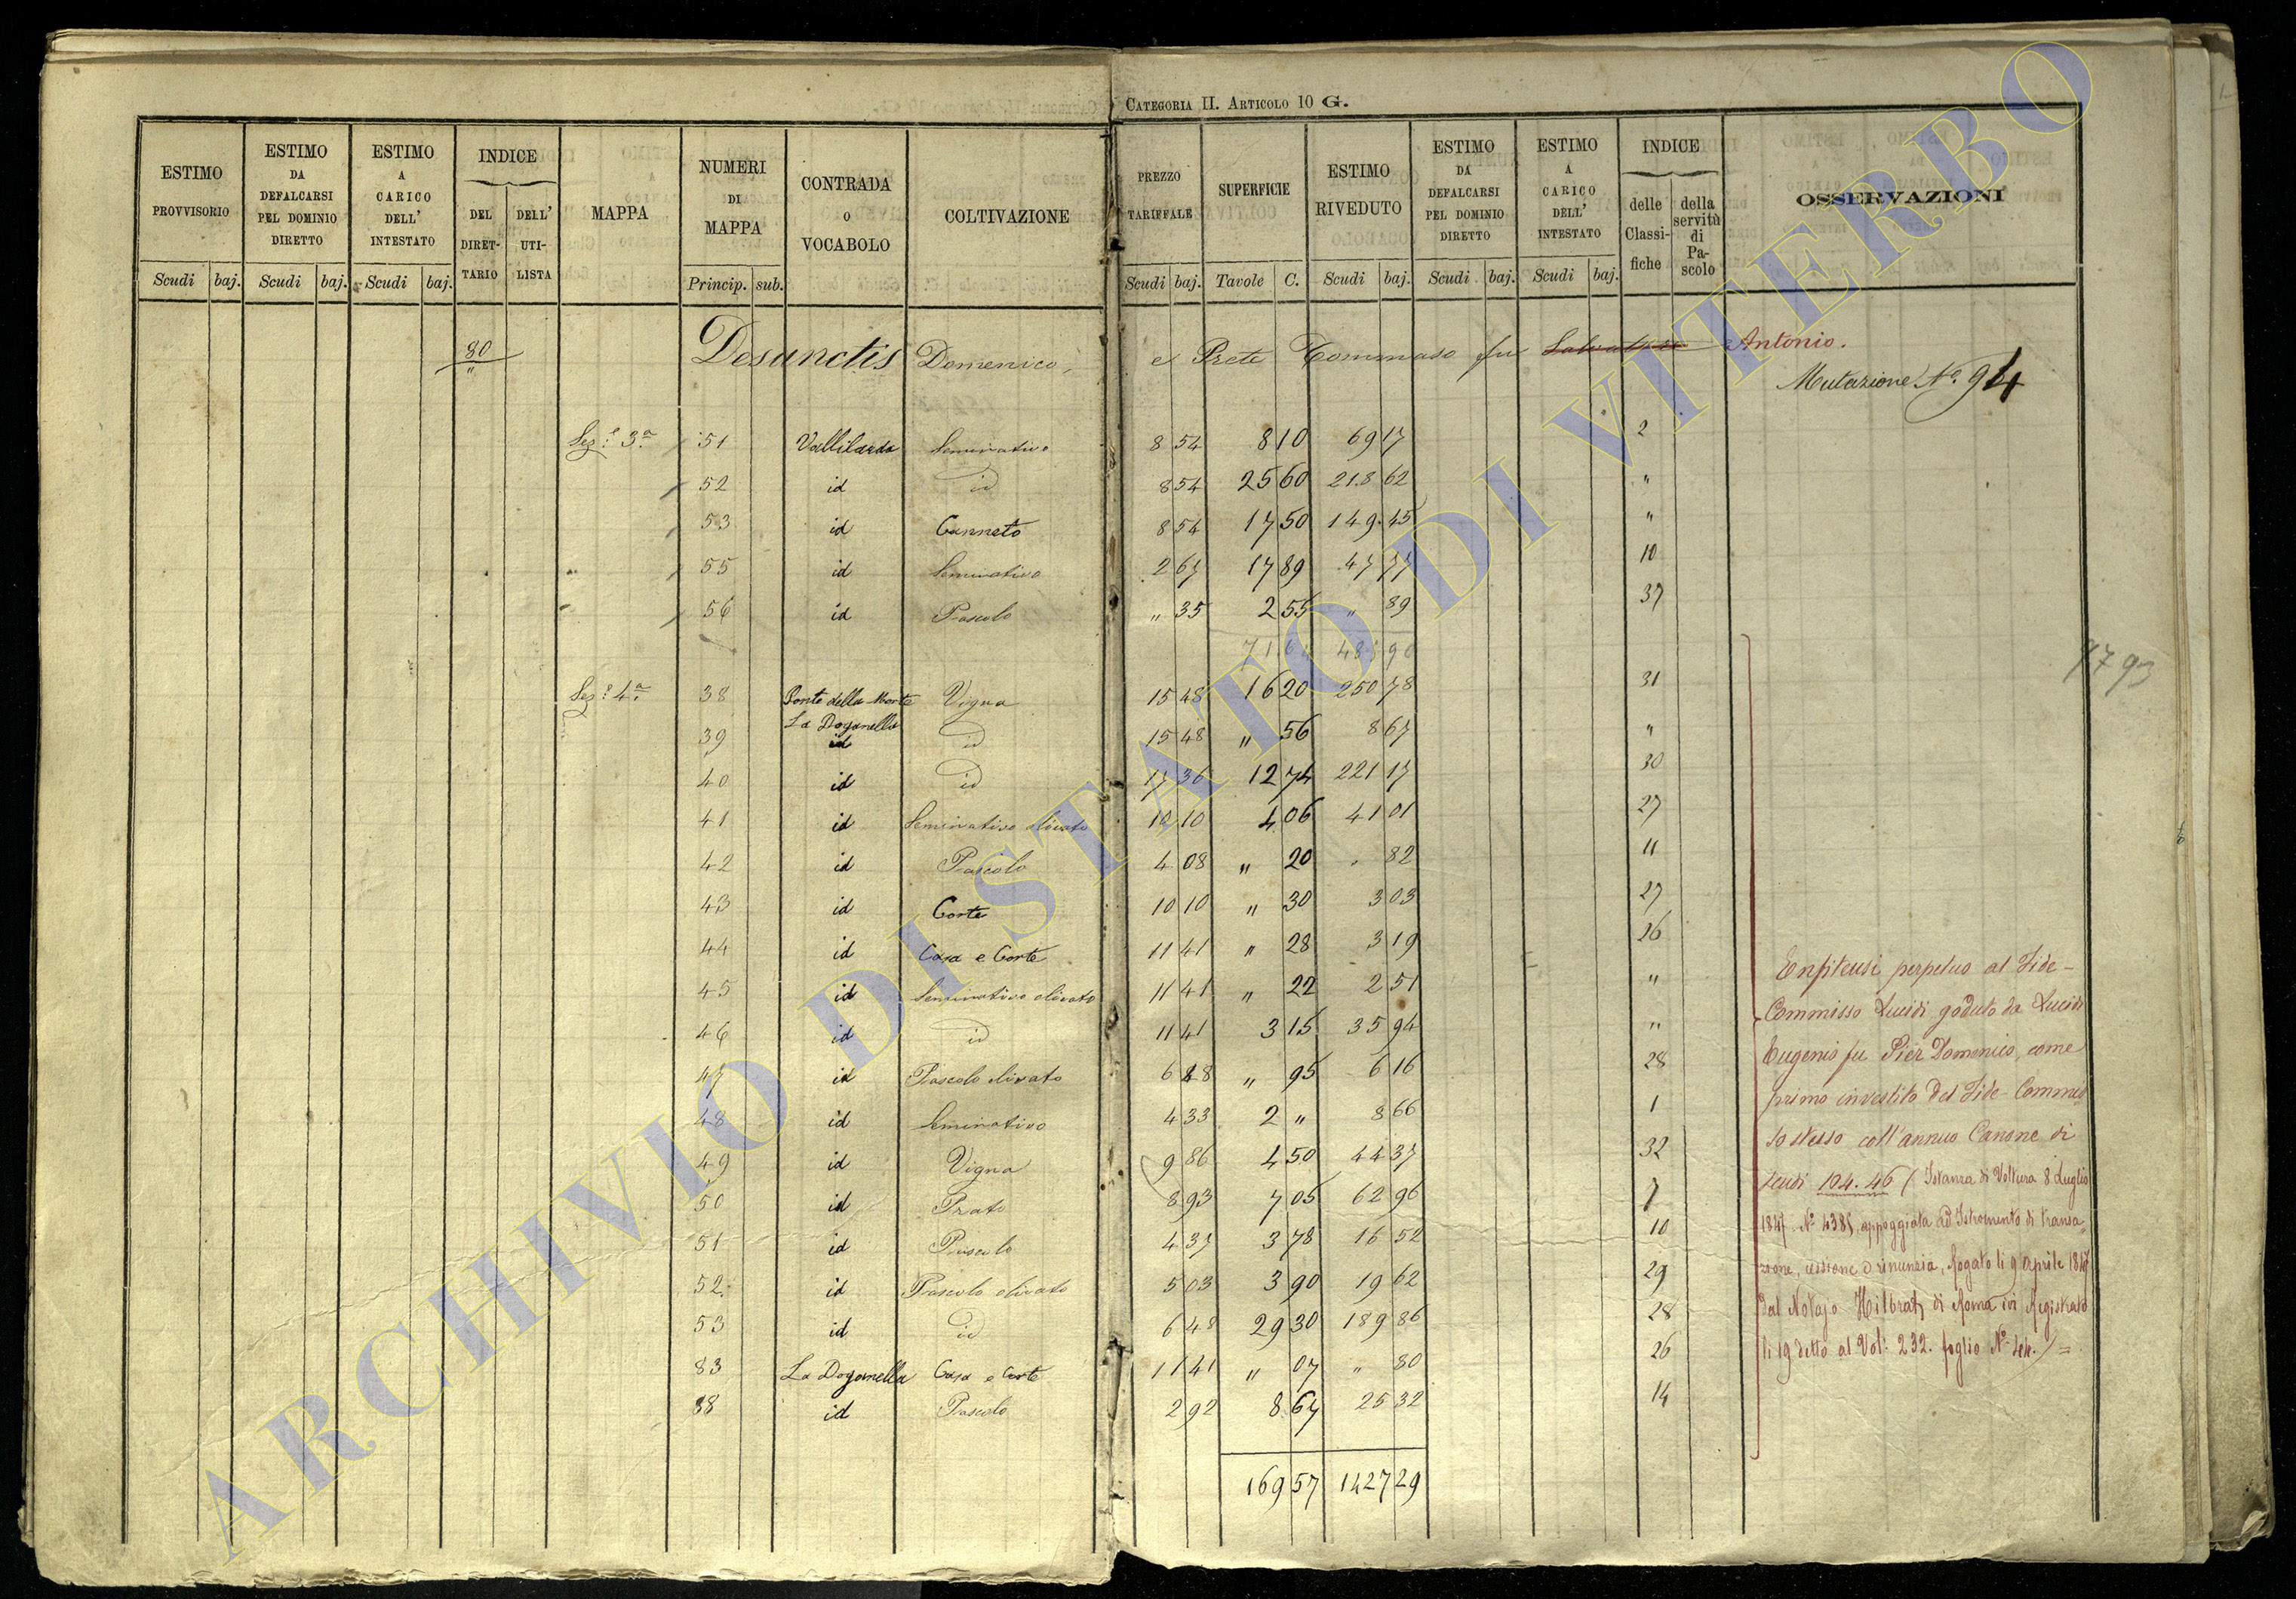 CATEGORIA II. ARTICOLO 10 G.
ESTIMO PROVVISORIO Scudi baj.
ESTIMO DA DEFALCARSI PEL DOMINIO DIRETTO Scudi baj.
ESTIMO A CARICO DELL' INTESTATO Scudi baj.
INDICE DEL DIRET-TARIO DELL' UTI-LISTA
MAPPA
NUMERI DI MAPPA Princip. sub.
CONTRADA O VOCABOLO
COLTIVAZIONE
PREZZO TARIFFALE Scudi baj.
SUPERFICIE Tavole C.
ESTIMO RIVEDUTO Scudi baj.
ESTIMO DA DEFALCARSI PEL DOMINIO DIRETTO Scudi baj.
ESTIMO A CARICO DELL' INTESTATO Scudi baj.
INDICE delle Classi-fiche della servitù di Pa-scolo
OSSERVAZIONI
80 Desanctis Domenico, e Prete Tommaso fu Antonio.
"
Mutazione N.º 94
Sez.e 3ª 51 Vallilarda Seminativo 8 54 8 10 69 17 2
52 id id 8 54 25 60 218 62 "
53 id Canneto 8 54 17 50 149 45 "
55 id Seminativo 2 67 17 89 47 77 10
56 id Pascolo " 35 2 55 " 89 37
71 64 485 90
17 93
Sez.e 4ª 38 Ponte della Morte Vigna 15 48 16 20 250 78 31
La Doganella
39 id id 15 48 " 56 8 67 "
40 id id 17 36 12 74 221 17 30
41 id Seminativo olivato 10 10 4 06 41 01 27
42 id Pascolo 4 08 " 20 " 82 11
43 id Corte 10 10 " 30 3 03 27
44 id Casa e Corte 11 41 " 28 3 19 26
45 id Seminativo olivato 11 41 " 22 2 51 "
46 id id 11 41 3 15 35 94 "
47 id Pascolo olivato 6 48 " 95 6 16 28
48 id Seminativo 4 33 2 " 8 66 1
49 id Vigna 9 86 4 50 44 37 32
50 id Prato 8 93 7 05 62 96 7
51 id Pascolo 4 37 3 78 16 52 10
52 id Pascolo olivato 5 03 3 90 19 62 29
53 id id 6 48 29 30 189 86 28
83 La Doganella Casa e Corte 11 41 " 07 " 80 26
88 id Pascolo 2 92 8 67 25 32 14
169 57 1427 29
Enfiteusi perpetuo al Fide-
Commisso Lucidi goduto da Lucidi
Eugenio fu Pier Domenico, come
primo investito del Fide-Commis
so stesso coll'annuo Canone di
Scudi 104.46 (Istanza di Voltura 8 Luglio
1847. Nº 4385, appoggiata ad Istromento di transa-
zione, cessione e rinunzia, Rogato li 9 Aprile 1847
dal Notajo Hilbrat, di Roma ivi Registrato
li 19 detto al Vol: 232. foglio Nº 44.) =
ARCHIVIO DI STATO DI VITERBO